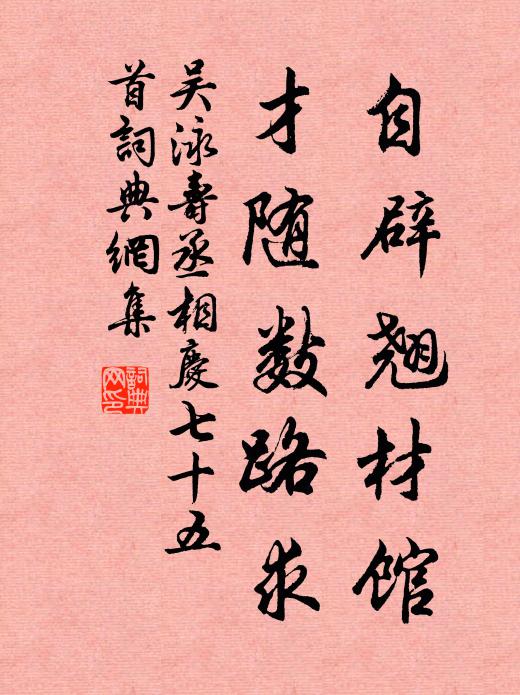 自辟翘材馆
才随数路求
吴泳寿丞相庆七十五
首詞典網集
詞典網印